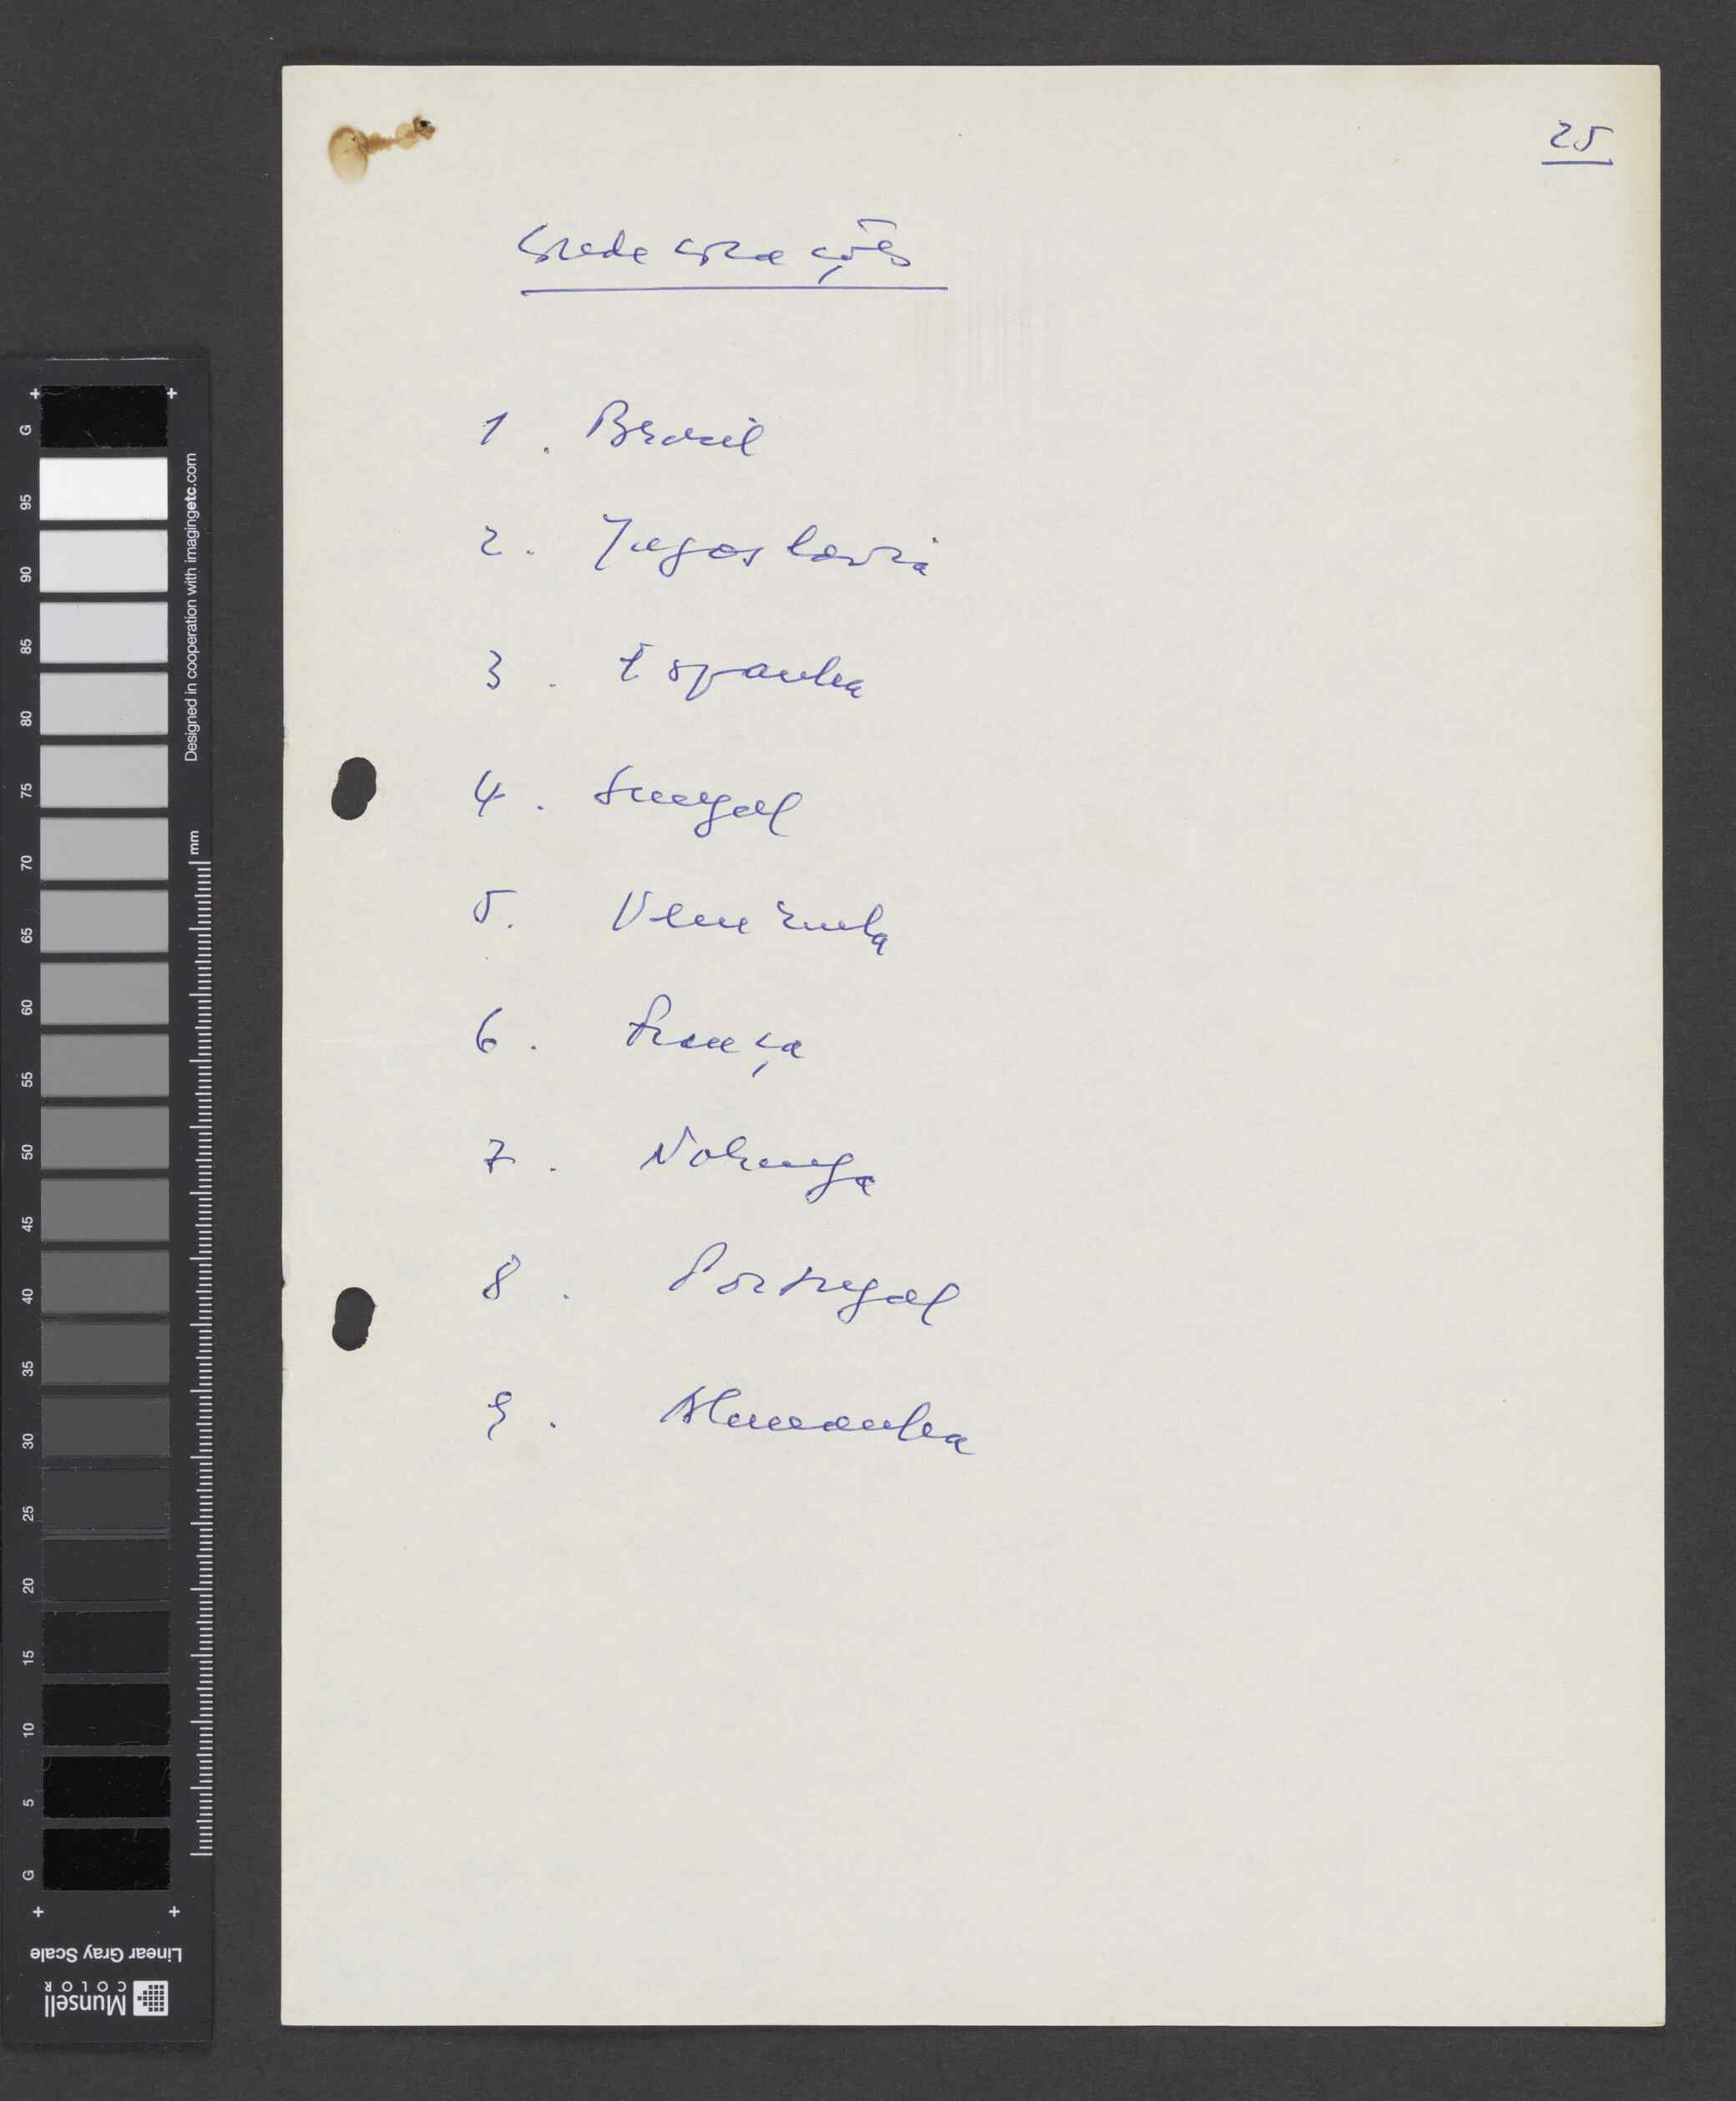 25
Condecorações
1. Brasil
2. Jugoslavia
3. Espanha
4. Senegal
5. Venezuela
6. França
7. Noruega
8. Portugal
9. Alemanha
G
95
90
85
80
75
70
65
60
55
50
45
40
35
30
25
20
15
10
5
G
Designed in cooperation with imagingetc.com
mm
Linear Gray Scale
Munsell
COLOR